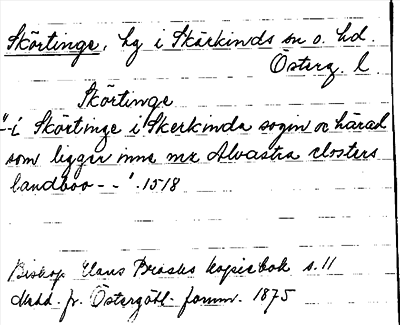 Skörtinge, hg i Skärkinds sn o. hd.
Österg. l
Skörtinge
"-i Skörtinge i Skerkinda sogin oc härad
som ligger inne mz Alvastra closters
landboo - -". 1518
Biskop Hans Brasks kopiebok s. 11
Medd. fr. Östergötl. fornm. 1875